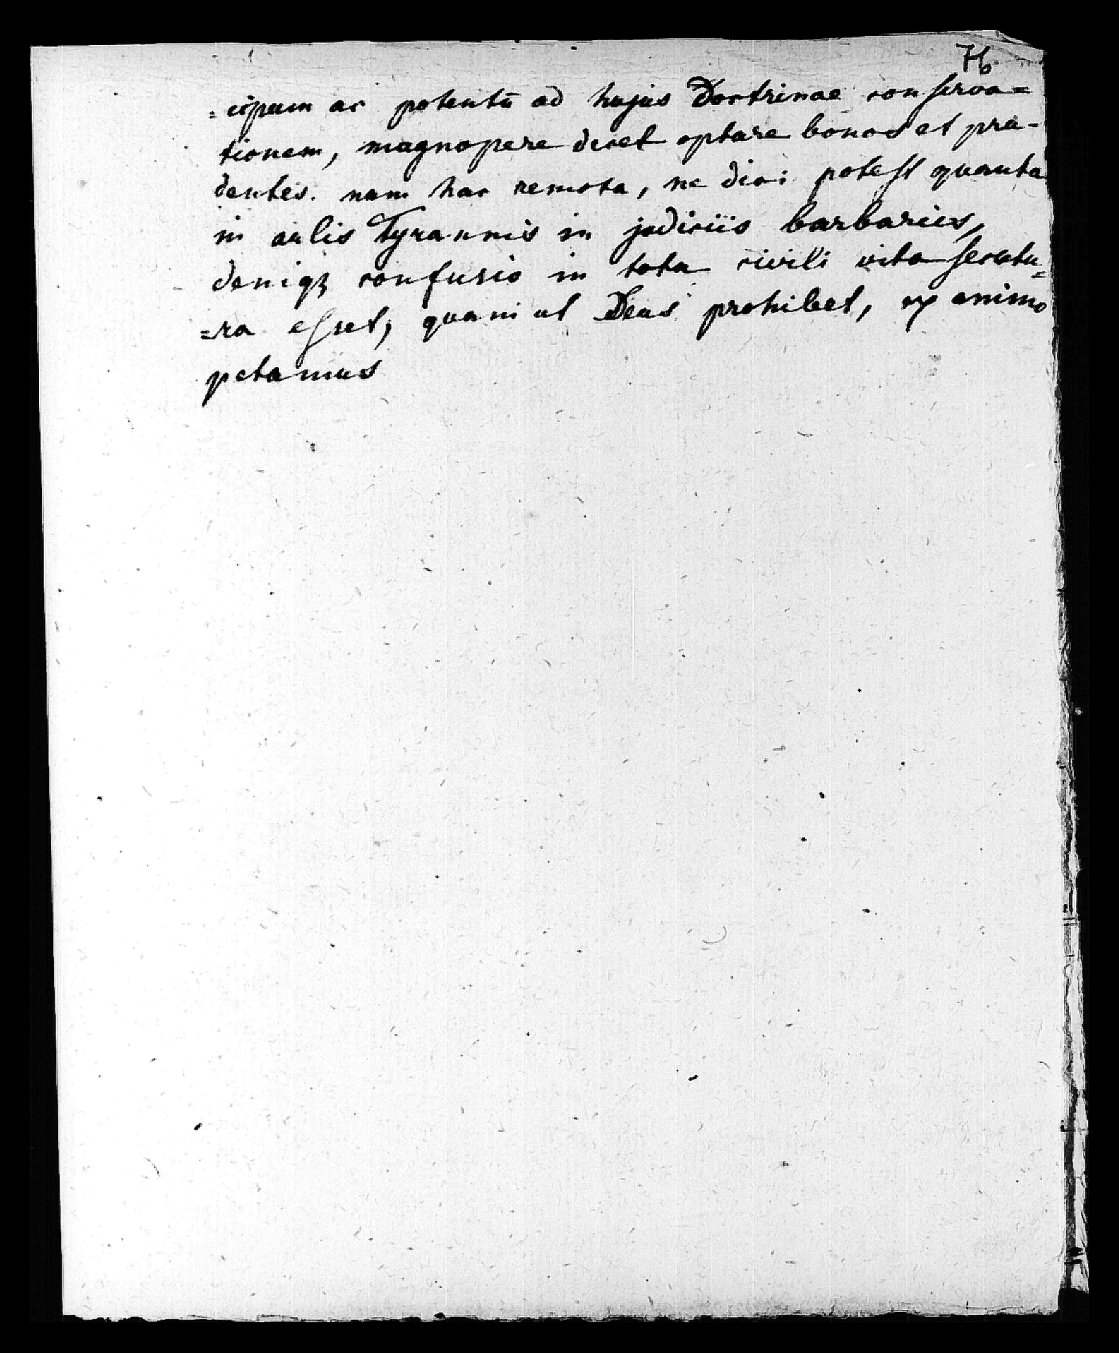 76
=cipum ac potentū ad hujus Doctrinae conserva=
tionem, magnopere decet optare bonos et pru-
dentes. nam hac remota, ne dici potest quanta
in aulis Tyrannis in judiciis barbaries,
deniqꝫ confusio in tota civili vita secutu=
=ra esset, quam ut Deus prohibet, ex animo
petamus